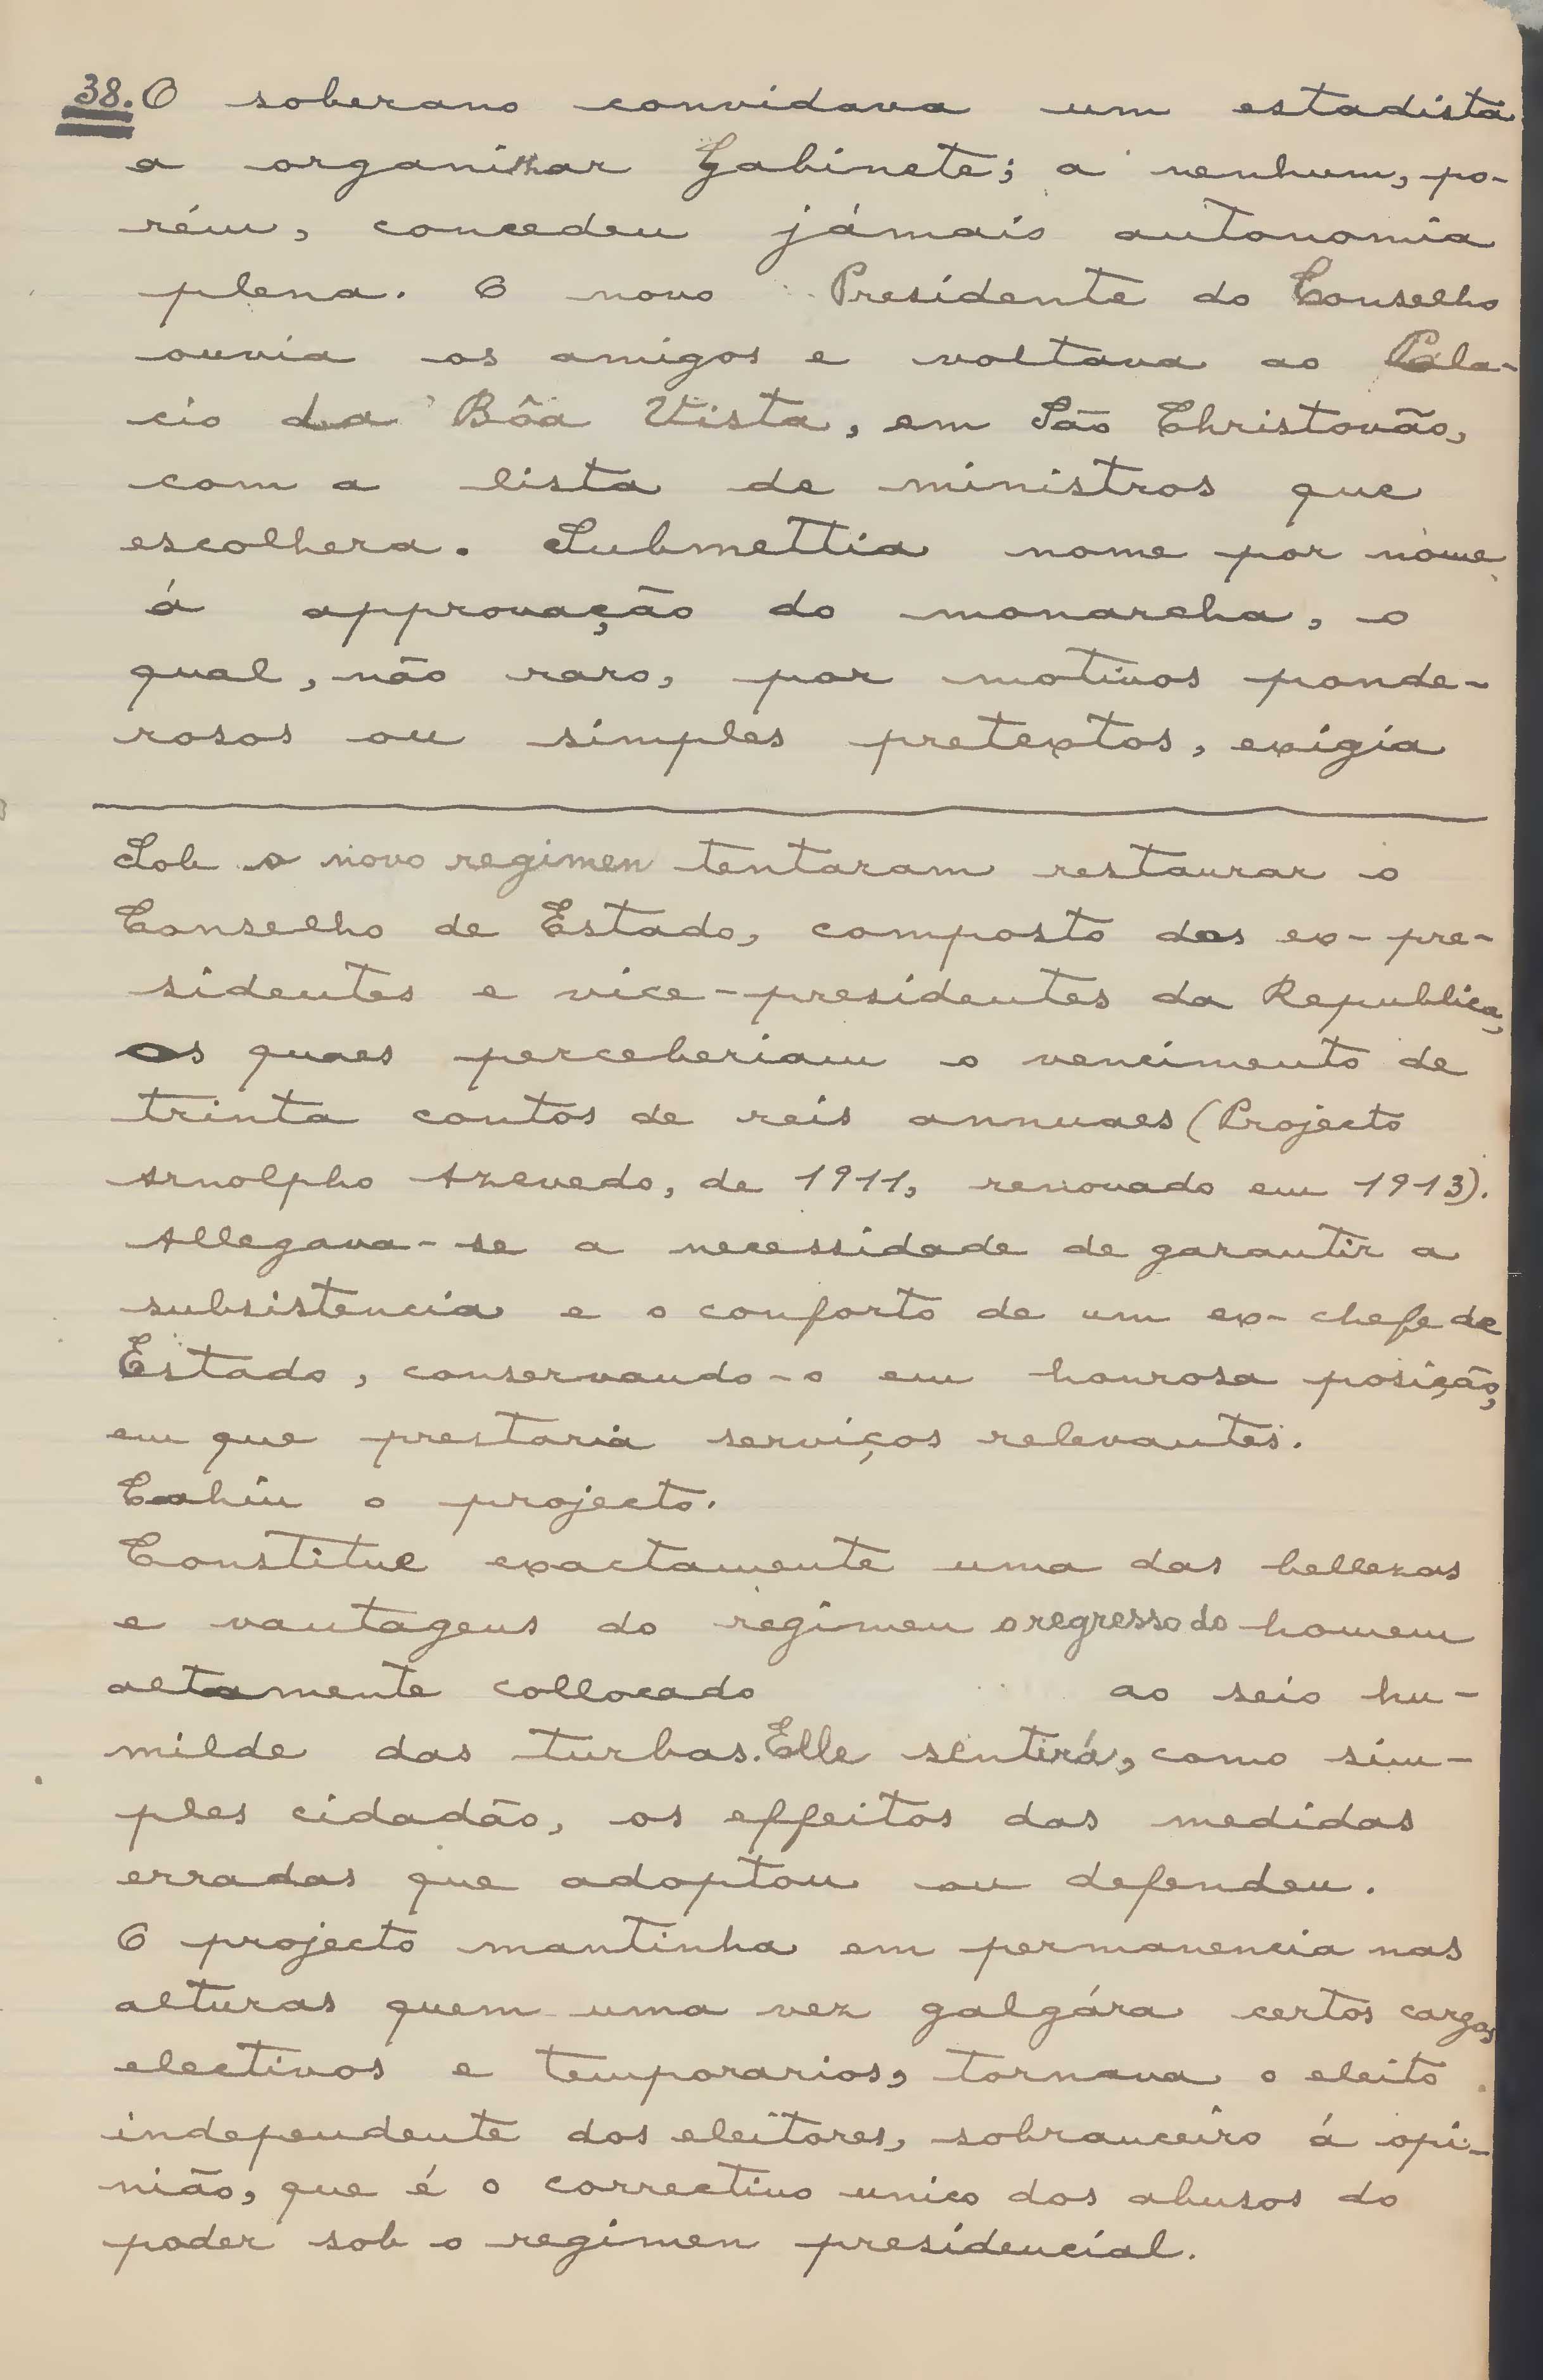 38. O soberano convidava um estadista
a organizar Gabinete; a nenhum, po-
rém, concedeu jámais autonomia
plena. O novo Presidente do Conselho
ouvia os amigos e voltava ao Pala-
cio da Bôa Vista, em São Christovão,
com a lista de ministros que
escolhera. Submettia nome por nome
á approvação do monarcha, o
qual, não raro, por motivos ponde-
rosos ou simples pretextos, exigia
Sob o novo regimen tentaram restaurar o
Conselho de Estado, composto dos ex-pre-
sidentes e vice-presidentes da Republica,
os quaes perceberiam o vencimento de
trinta contos de reis annuaes (Projecto
Arnolpho Azevedo, de 1911, renovado em 1913).
Allegava-se a necessidade de garantir a
subsistencia e o conforto de um ex-chefe de
Estado, conservando-o em honrosa posição,
em que prestaria serviços relevantes.
Cahiu o projecto.
Constitue exactamente uma das bellezas
e vantagens do regimen o regresso do homem
altamente collocado ao seio hu-
milde das turbas. Elle sentirá, como sim-
ples cidadão, os effeitos das medidas
erradas que adoptou ou defendeu.
O projecto mantinha em permanencia nas
alturas quem uma vez galgára certos cargos
electivos e temporarios, tornava o eleito
independente dos eleitores, sobranceiro á opi-
nião, que é o correctivo unico dos abusos do
poder sob o regimen presidencial.